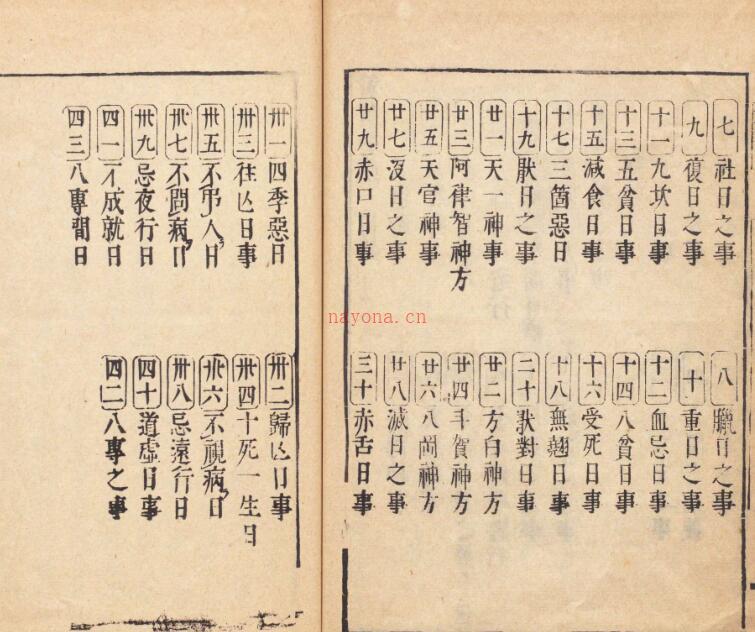 七 社日之事
八 臘日之事
九 復日之事
十 重日之事
十一 九坎日事
十二 血忌日事
十三 五貧日事
十四 八貧日事
十五 減食日事
十六 受死日事
十七 三箇惡日
十八 無翹日事
十九 厭日之事
二十 厭對日事
廿一 天一神事
廿二 方白神方
廿三 阿律智神方
廿四 斗賀神方
廿五 天官神事
廿六 八尚神方
廿七 沒日之事
廿八 滅日之事
廿九 赤口日事
三十 赤舌日事
卅一 四季惡日
卅二 歸亾日事
卅三 往亾日事
卅四 十死一生日
卅五 不弔人日
卅六 不視病日
卅七 不問病日
卅八 忌遠行日
卅九 忌夜行日
四十 道虛日事
四一 不成就日
四二 八專之事
四三 八專間日
nayona.cn